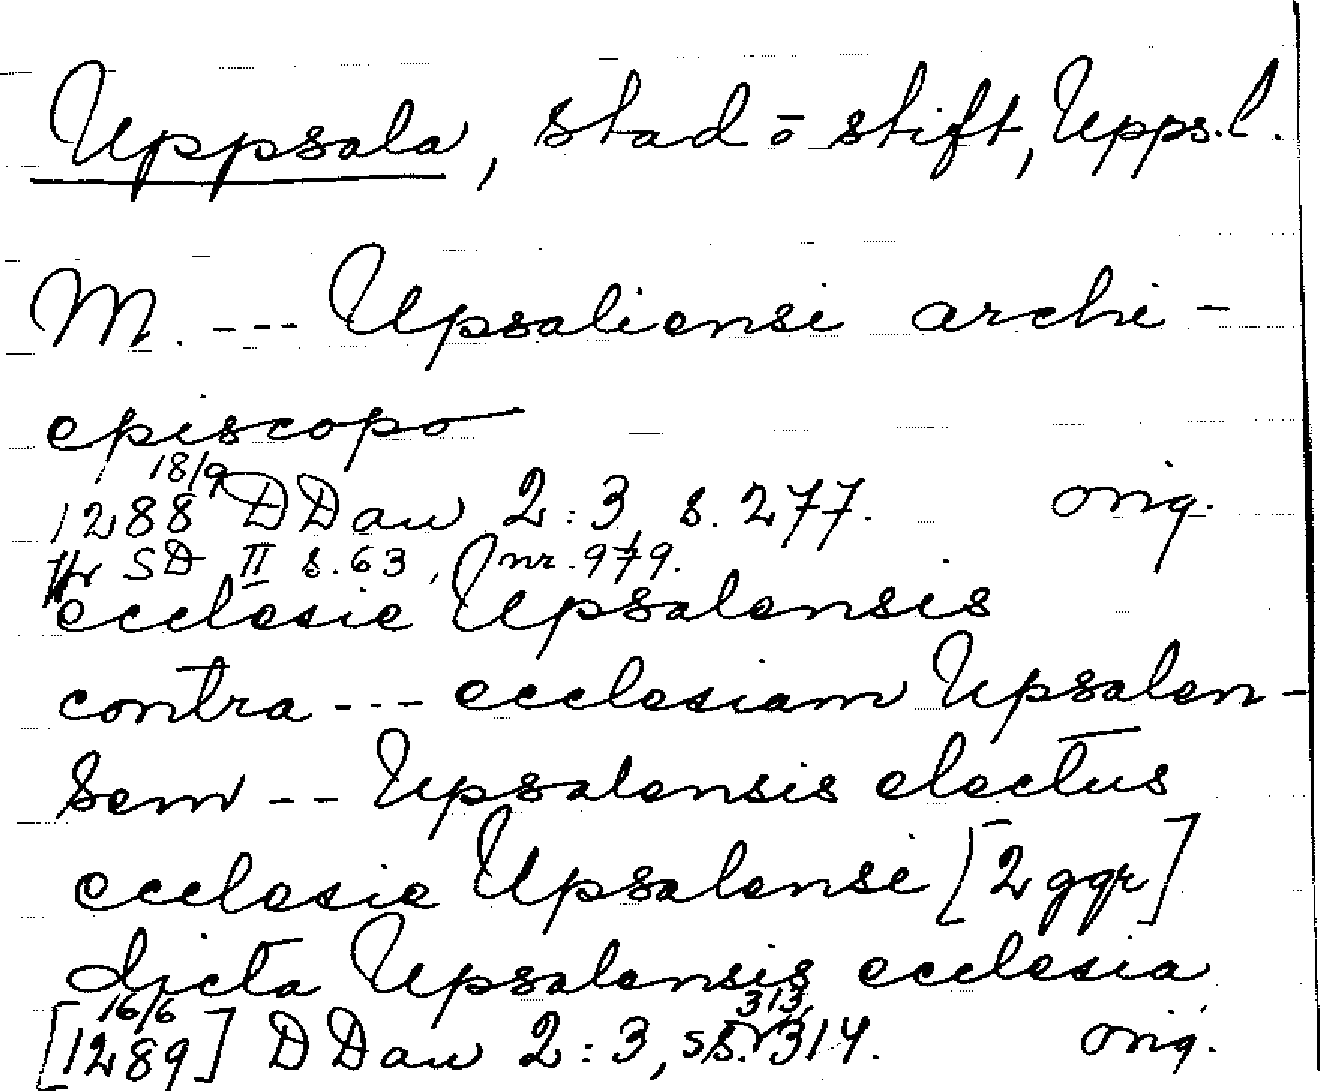 Uppsala, stad o stift, Upps.l.
M. --- Upsaliensi archi-
episcopo
18/9
1288 DDan 2:3, s. 277. orig.
Tr SD II s. 63, nr. 979.
ecclesie Upsalensis
contra --- ecclesiam Upsalen-
sem -- Upsalensis electus
ecclesie Upsalensi [2 ggr]
dicta Upsalensis ecclesia
[16/6 1289] DDan 2:3, ss. 313, 314. orig.